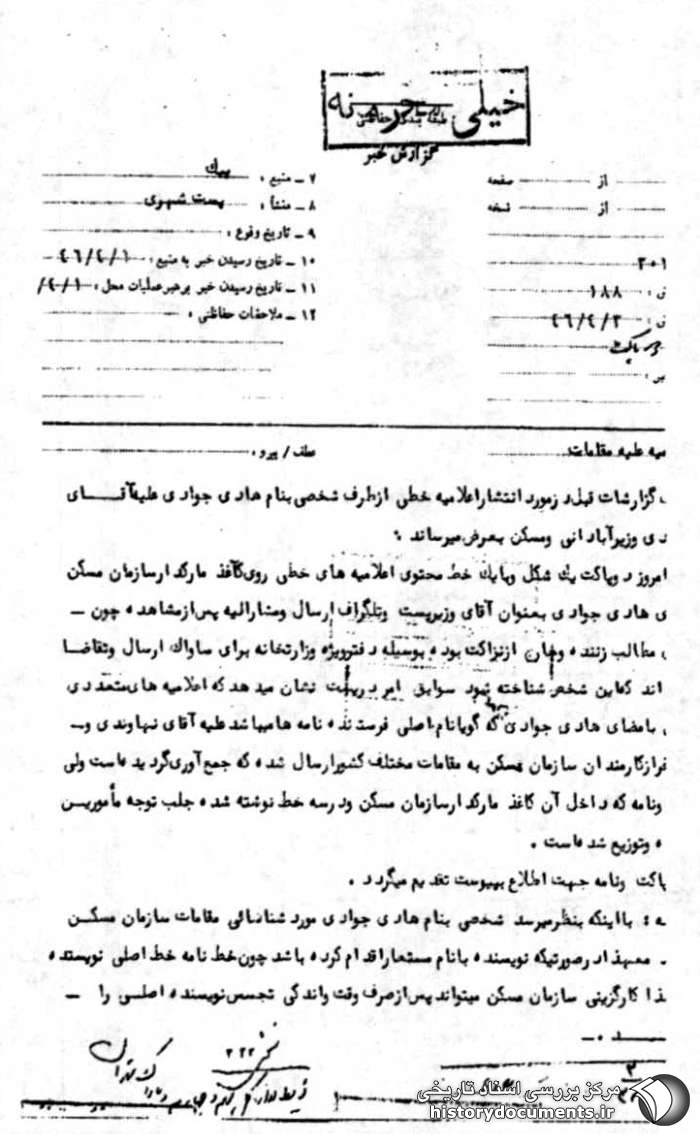 خیلی محرمانه
طبقه بندی حفاظتی
گزارش خبر
از صفحه
از نسخه
۲۰۱
ن : ۱۸۸
ن : ۴۶/۴/۲
پاکت
بر :
۷ ـ منبع : پیك
۸ ـ منشأ : پست شهری
۹ ـ تاریخ وقوع :
۱۰ ـ تاریخ رسیدن خبر به منبع : ۴۶/۴/۱
۱۱ ـ تاریخ رسیدن خبر برهبر عملیات محل : ۴/۱/
۱۲ ـ ملاحظات حفاظتی :
میه علیه مقامات
عطف / پیرو :
گزارشات قبل در مورد انتشار اعلامیه خطی از طرف شخصی بنام هادی جوادی علیه آقای
دی وزیر آبادانی ومسکن بعرض میرساند :
امروز دو پاکت یك شکل وبا یك خط محتوی اعلامیه های خطی روی کاغذ مارکدار سازمان مسکن
ی هادی جوادی بعنوان آقای وزیر پست وتلگراف ارسال ومشارالیه پس از مشاهده چون ـ
مطالب زننده و از نزاکت بوده بوسیله دفتر ویژه وزارتخانه برای ساواك ارسال وتقاضا
اند که این شخص شناخته شود سوابق امر در پست نشان میدهد که اعلامیه های متعددی
بامضای هادی جوادی که گویا نام اصلی فرستنده نامه ها میباشد علیه آقای نهاوندی و ـ
نفر از کارمندان سازمان مسکن به مقامات مختلف کشور ارسال شده که جمع آوری گردیده است ولی
ونامه که داخل آن کاغذ مارکدار سازمان مسکن ودر سه خط نوشته شده جلب توجه مأمورین
ه وتوزیع شده است .
پاکت ونامه جهت اطلاع بپیوست تقدیم میگردد .
ه : با اینکه بنظر میرسد شخصی بنام هادی جوادی مورد شناسائی مقامات سازمان مسکن
. معهذا در صورتیکه نویسنده با نام مستعار اقدام کرده باشد چون خط نامه خط اصلی نویسنده
ذا کارگزینی سازمان مسکن میتواند پس از صرف وقت واندکی تجسس نویسنده اصلی را ـ
۳۲۲
مرکز بررسی اسناد تاریخی
historydocuments.ir